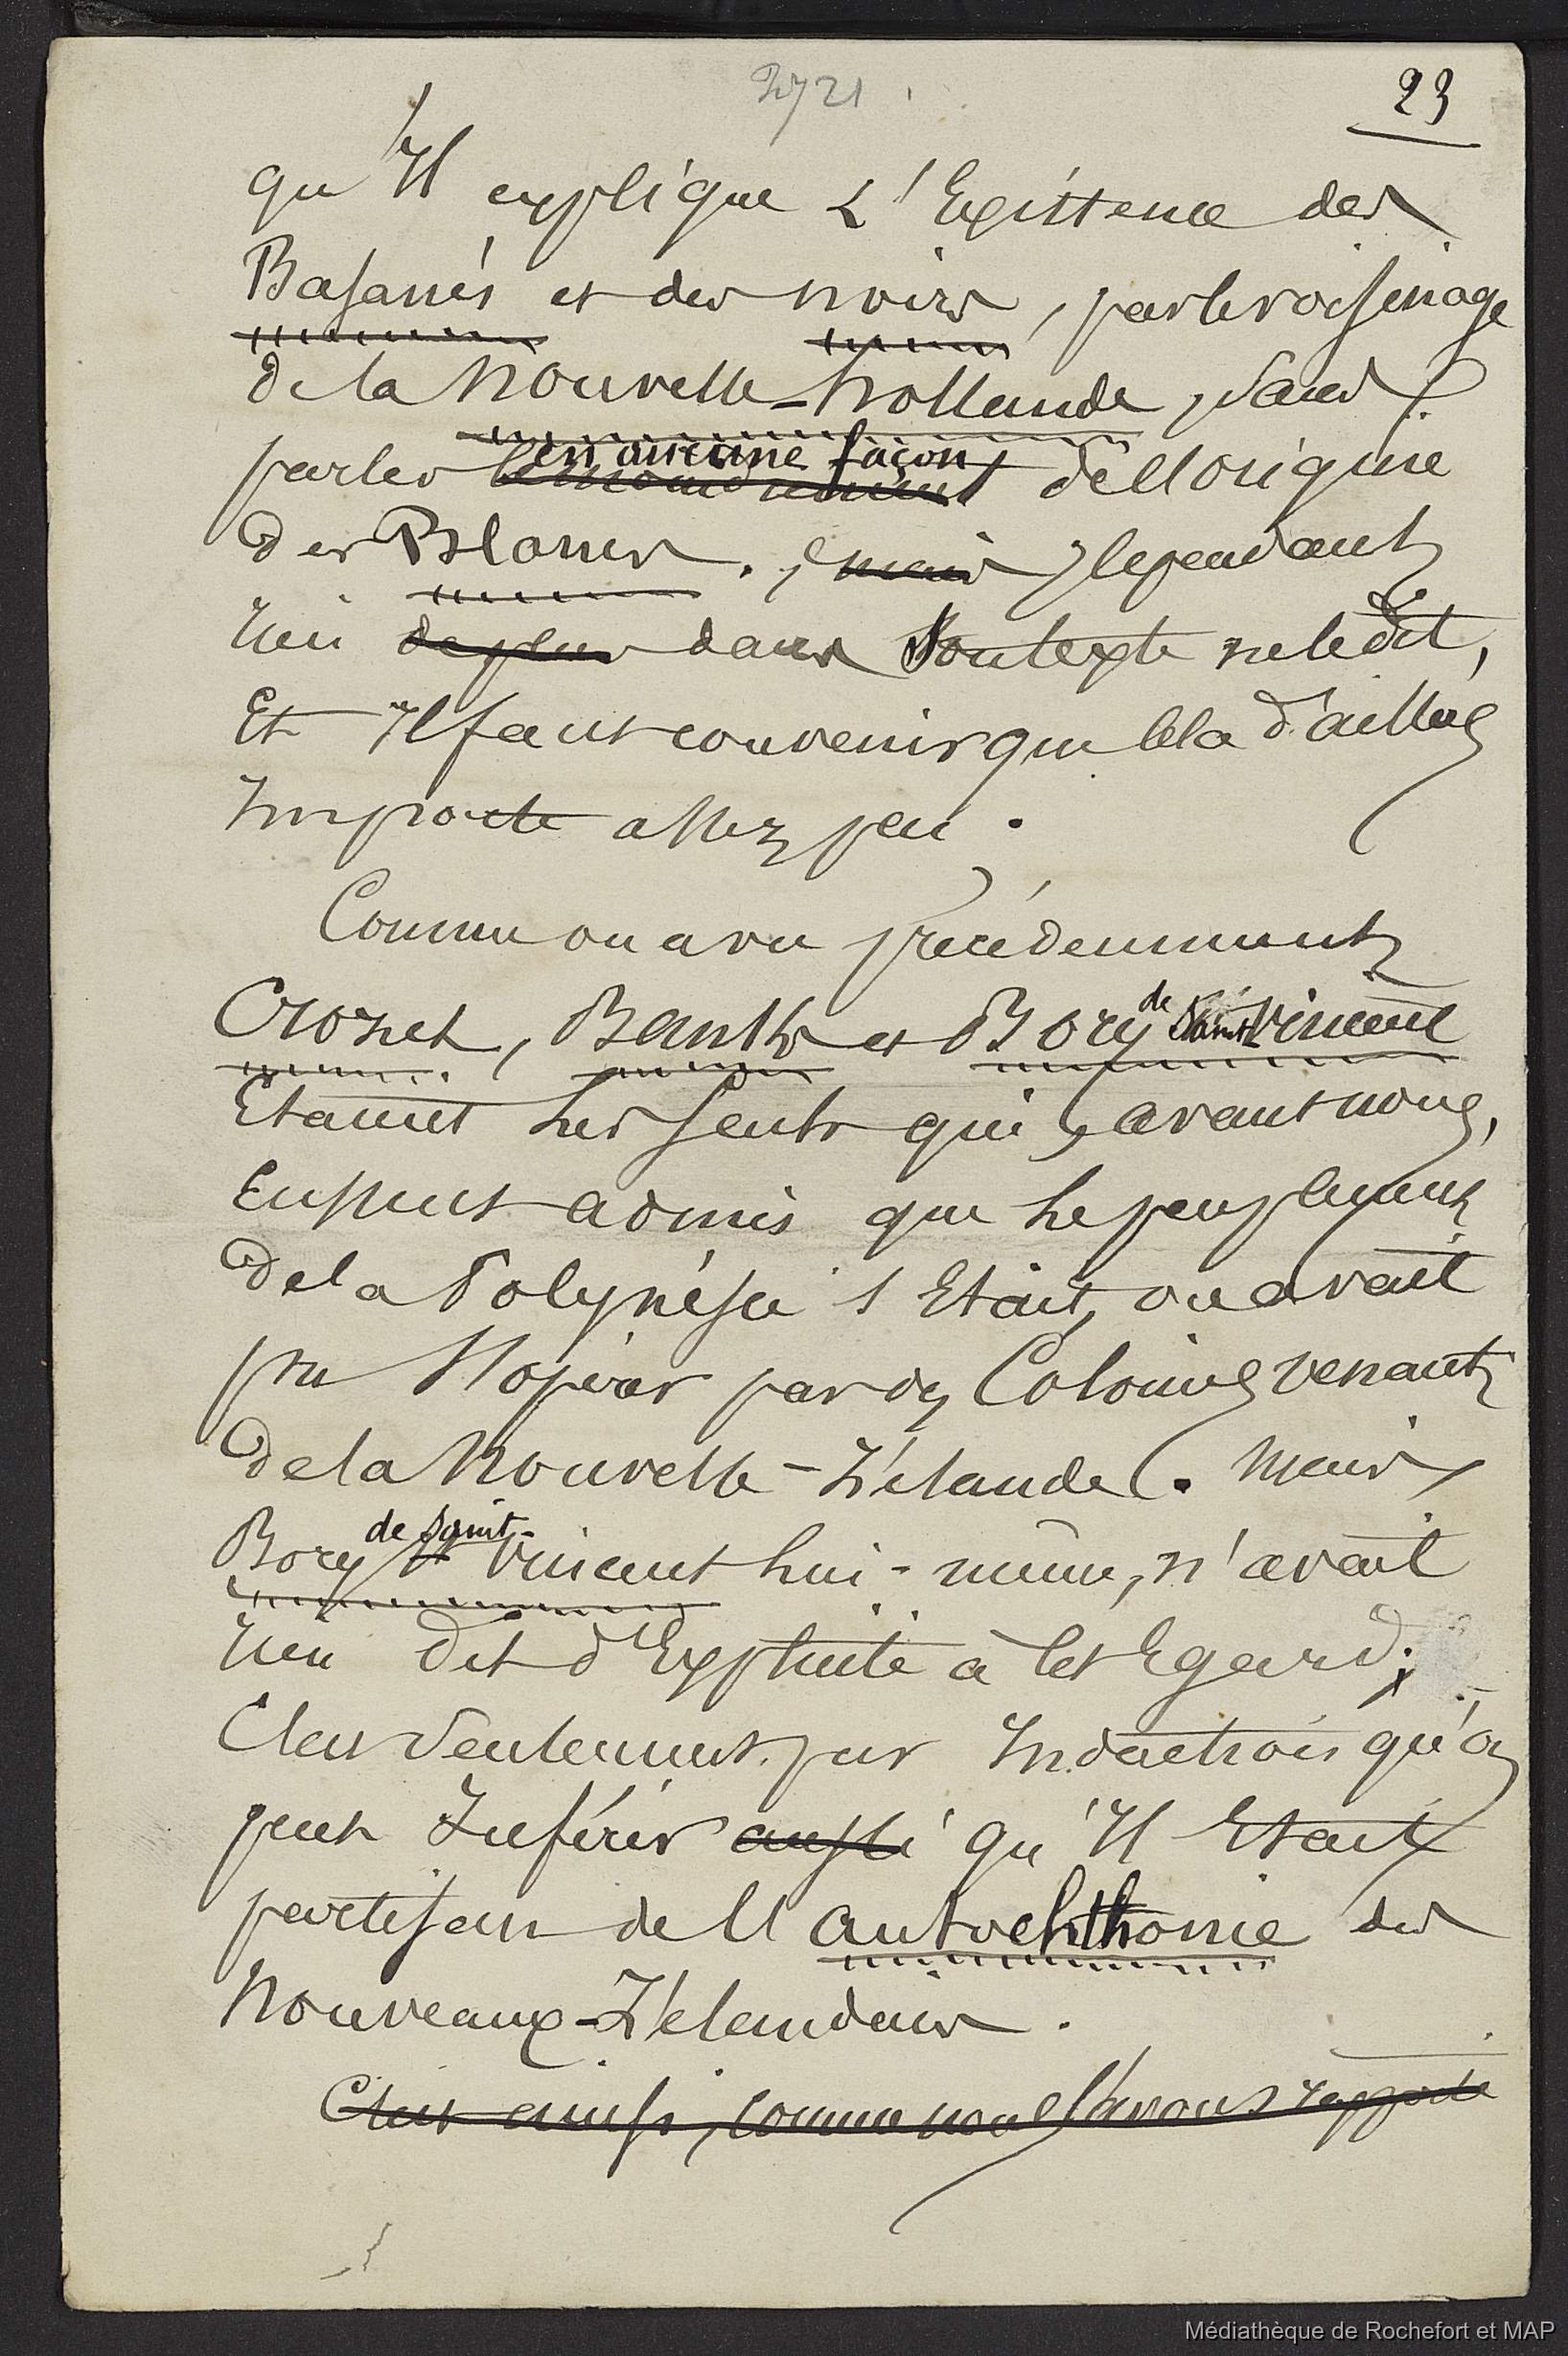 2721
23
qu'Il explique L'Existence des
Basanés et des noirs, par le voisinage
de la Nouvelle-hollande, sans
en aucune façon
parler le moins du monde de l'origine
des Blancs. , mais cependant
rien de plus dans son texte ne le dit,
Et Il faut convenir que Cela d'ailleurs
Importe assez peu.
Comme on a vu précédemment
Crozet, Banks et Bory de Saint Vincent
Etaient Les seuls qui, avant nous,
Eussent admis que Le peuplement
de la Polynésie s'Etait, ou avait
pu s'opérer par des Colonies venant
de la Nouvelle-Zélande. Mais
de Saint-
Bory St Vincent Lui-même, n'avait
rien dit d'Explicite à Cet Egard;
C'est seulement par Induction qu'on
peut Inférer aussi qu'Il Etait
partisan de l'autochthonie des
Nouveaux-Zélandais.
C'est ainsi, comme nous l'avons rapporté
Médiathèque de Rochefort et MAP